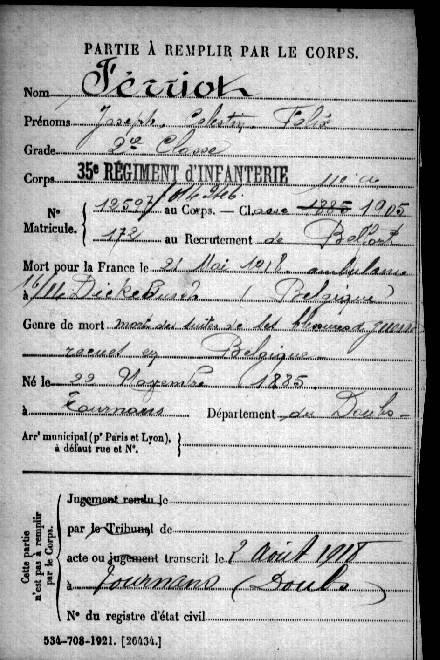 PARTIE À REMPLIR PAR LE CORPS.
Nom Férriot
Prénoms Joseph, Félix
Grade 2e Classe
Corps 35e RÉGIMENT D'INFANTERIE 11e Cie
N° Matricule. 12597 / au Corps. — Classe 1885 1905
172 au Recrutement de Belfort
Mort pour la France le 21 Mai 1918 ambulance
à 16/11 Dickebusch (Belgique)
Genre de mort mort des suites de guerre
en Belgique
Né le 22 Novembre 1885
à Tournans Département du Doubs
Arrt municipal (pr Paris et Lyon), à défaut rue et N°.
Cette partie n'est pas à remplir par le Corps.
Jugement rendu le
par le Tribunal de
acte ou jugement transcrit le 2 Août 1918
à Tournans (Doubs)
N° du registre d'état civil
534-708-1921. [26434.]